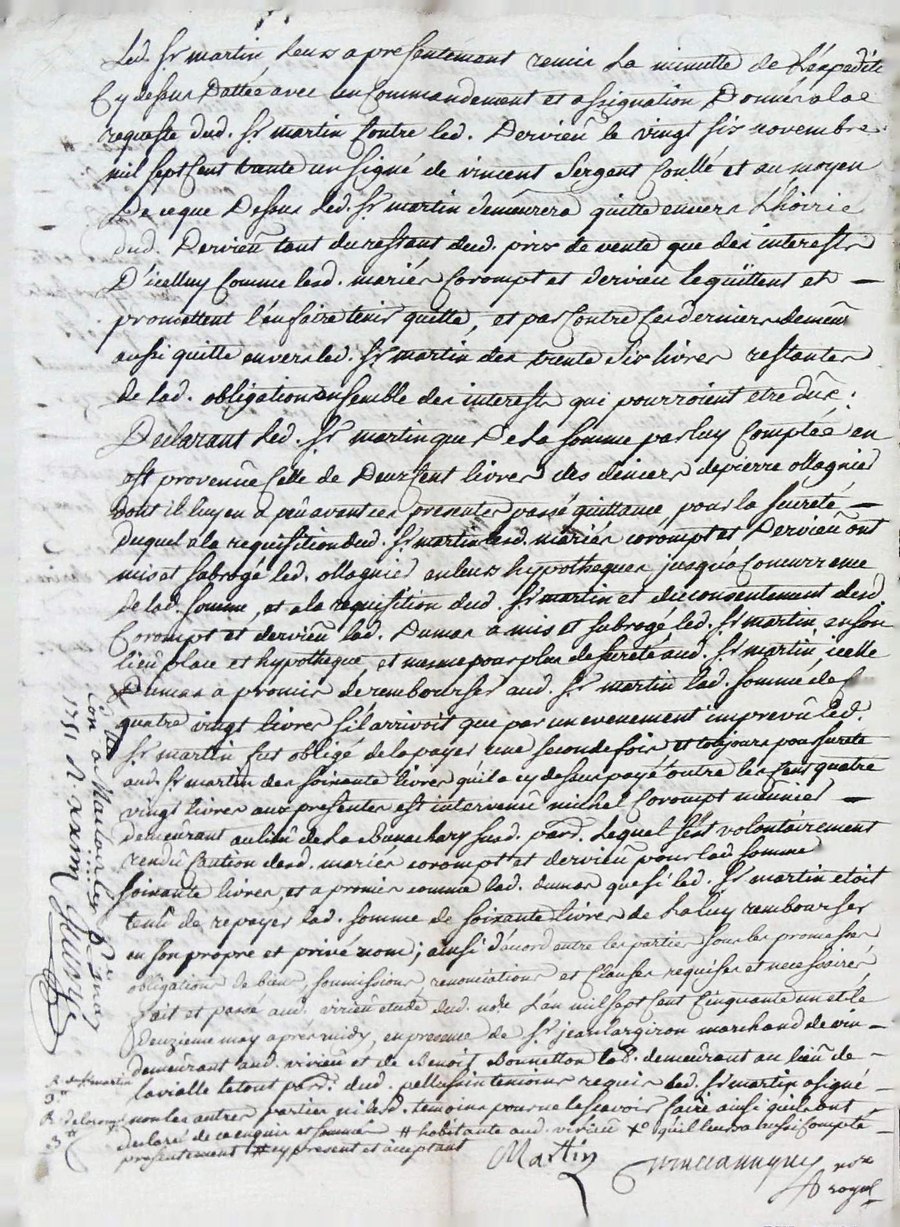 Led. Sr. martin leurs a presentement remis la minutte de l'expedité
Cy dessus Dattée avec un Commandement et assignation Donnés a la
requeste dud. Sr. martin Contre led. Dervieu le vingt six novembre
mil sept Cent trente un signé de vincent Sergent et au moyen
De ce que Dessus led. Sr. martin demeurera quitte envers l'hoirie
dud. Dervieu tant du restant dud. prix de vente que des interests
D'icelluy Comme lesd. mariés Corompt et dervieu le quittent et
promettent l'en faire tenir quitte, et par Contre Ces derniers demeur
aussi quitte envers led. Sr. martin des trente six livres restantes
de lad. obligation ensemble des interests qui pourroient etre dus.
Declarant led. Sr. martin que De la somme par luy Comptée en
est provenüe Celle de Deux Cent livres des deniers de pierre ollagnier
dont il luy en a peu avant ces presentes passé quittance pour la seureté
duquel a la requisition dud. Sr. martin lesd. mariés corompt et Dervieu ont
mis et subrogé led. ollagnier en leurs hypotheques jusqu'a Concurrance
de lad. somme, et a la requisition dud. Sr. martin et du consentement desd
Corompt et dervieu lad. Dumas a mis et subrogé led. Sr. martin en son
lieu place et hypotheque, et mesme pour plus de sureté aud. Sr. martin, icelle
Dumas a promis de rembourser aud. Sr. martin lad. somme de
quatre vingt livres s'il arrivoit que par un evenement imprevu led.
Sr. martin fut obligé de la payer une seconde fois et toujours pour sureté
aud. Sr. martin des soixante livres qu'il a cy dessus payé outre les Cent quatre
vingt livres aux presentes est intervenu michel Corompt
demeurant au lieu de la susd. par. Lequel s'est volontairement
rendu Caution desd. mariés corompt et dervieu pour lad somme
soixante livres, et a promis comme lad. dumas que si led. Sr. martin etoit
tenu de repayer lad. somme de soixante livres de la luy rembourser
en son propre et privé nom; ainsi d'acord entre les parties sous les promesses
obligation de biens, soumissions renonciations et Clauses requises et necessaires
fait et passé aud. virieu etude dud. nore L'an mil sept Cent Cinquante un et le
Deuzieme may aprés midy, en presence de Sr. jean largiron marchand de vin
demeurant aud. virieu et de Benoit Donnetton demeurant au lieu de
lavialle le tout par. dud. pellussin temoins requis led. Sr. martin a signé
non les autres parties ni lesd. temoins pour ne le scavoir faire ainsi qu'ils ont
declaré de ce enquis et sommés # habitante aud. virieu x qu'il leur a aussi Compté
presentement # cy present et aceptant
Martin
nore royal
1751